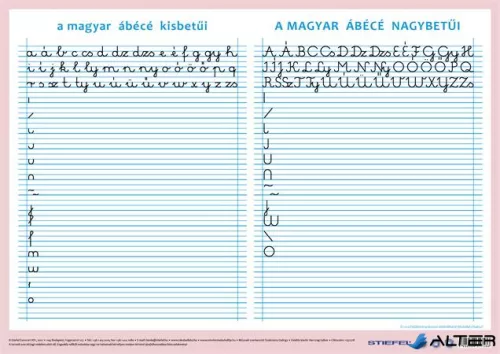 a magyar ábécé kisbetűi
a á b c cs d dz dzs e é f g gy h
i í j k l ly m n ny o ó ö ő p q
r s sz t ty u ú ü ű v w x y z zs
A MAGYAR ÁBÉCÉ NAGYBETŰI
A Á B C Cs D Dz Dzs E É F G Gy H
I Í J K L Ly M N Ny O Ó Ö Ő P Q
R S Sz T Ty U Ú Ü Ű V W X Y Z Zs
STIEFEL
ALTER